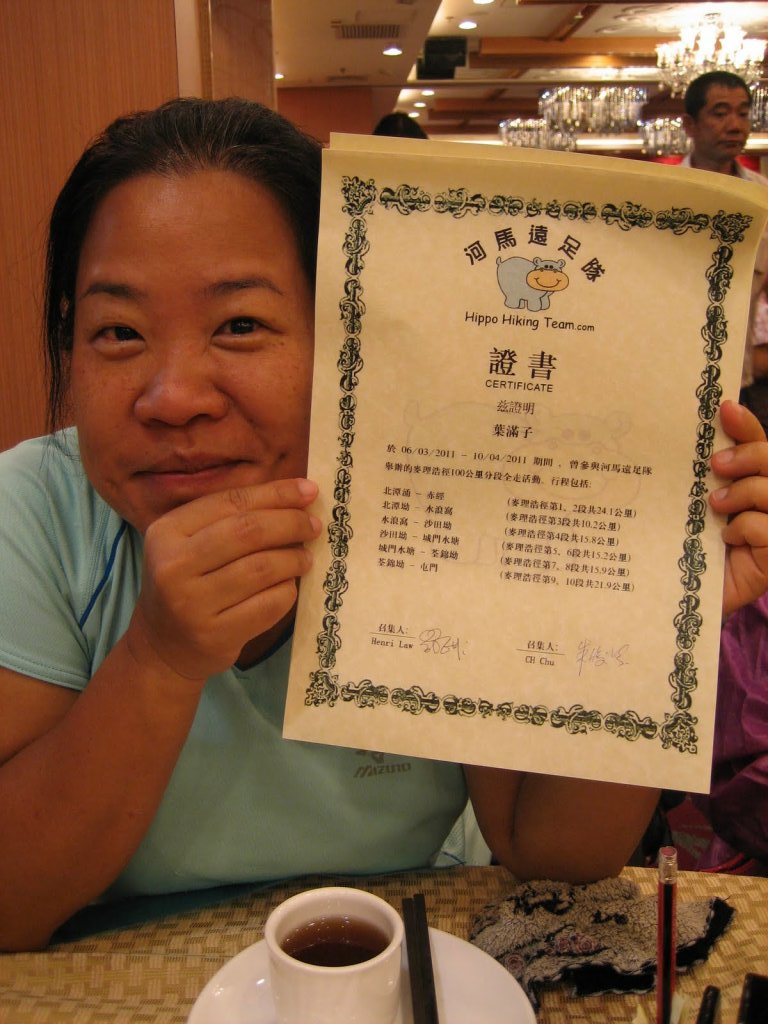 河馬遠足隊
Hippo Hiking Team.com
證書
CERTIFICATE
茲證明
葉滿子
於 06/03/2011 - 10/04/2011 期間，曾參與河馬遠足隊
舉辦的麥理浩徑100公里分段全走活動，行程包括:
北潭涌 - 赤徑 (麥理浩徑第1、2段共24.1公里)
北潭坳 - 水浪窩 (麥理浩徑第3段共10.2公里)
水浪窩 - 沙田坳 (麥理浩徑第4段共15.8公里)
沙田坳 - 城門水塘 (麥理浩徑第5、6段共15.2公里)
城門水塘 - 荃錦坳 (麥理浩徑第7、8段共15.9公里)
荃錦坳 - 屯門 (麥理浩徑第9、10段共21.9公里)
召集人: 召集人:
Henri Law CH Chu
MIZUNO